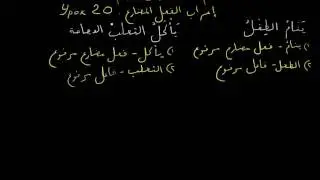 Урок 20 إعراب الفعل المضارع
يَنَامُ الطِّفْلُ يَأْكُلُ الثعلبُ الدجاجة
١) ينام - فعل مضارع مرفوع ١) يأكل - فعل مضارع مرفوع
٢) الطفل - فاعل مرفوع ٢) الثعلب - فاعل مرفوع